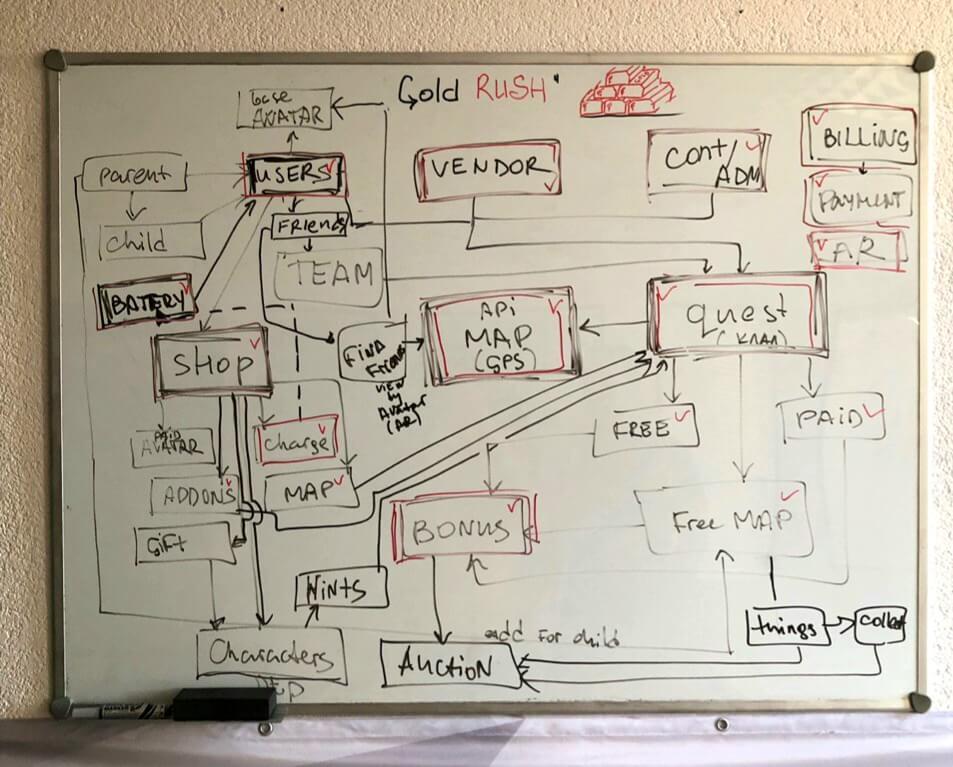 Gold RUSH
base
AVATAR
USERS
VENDOR
CONT/
ADM
BILLING
PAYMENT
AR
Parent
Child
Friends
TEAM
BATERY
SHOP
FIND
Friends
VIEW
by
Avatar
(AR)
APi
MAP
(GPS)
quest
FREE
PAiD
PAID
AVATAR
Charge
ADDONS
MAP
GiFt
BONUS
Free MAP
HiNtS
things
collect
add For child
Characters
AUCtiON